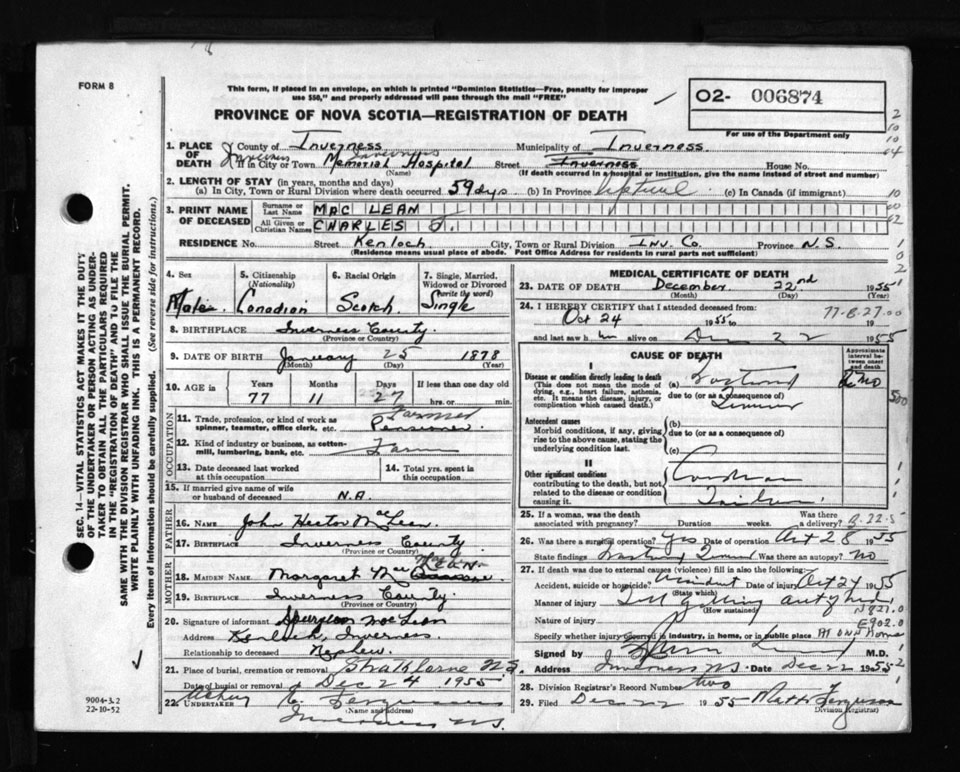 FORM 8
This form, if placed in an envelope, on which is printed "Dominion Statistics—Free, penalty for improper
use $50," and properly addressed will pass through the mail "FREE"
PROVINCE OF NOVA SCOTIA—REGISTRATION OF DEATH
02- 006874
For use of the Department only
1. PLACE OF DEATH
County of Inverness Municipality of Inverness
If in City or Town Inverness Memorial Hospital Street Inverness House No.
(Name) (If death occurred in a hospital or institution, give the name instead of street and number)
2. LENGTH OF STAY (in years, months and days)
(a) In City, Town or Rural Division where death occurred 59 dys. (b) In Province (c) In Canada (if immigrant)
3. PRINT NAME OF DECEASED
Surname or Last Name MAC LEAN
All Given or Christian Names CHARLES J.
RESIDENCE No. Street Kenloch City, Town or Rural Division Inv. Co. Province N.S.
(Residence means usual place of abode. Post Office Address for residents in rural parts not sufficient)
4. Sex Male
5. Citizenship (Nationality) Canadian
6. Racial Origin Scotch
7. Single, Married, Widowed or Divorced (write the word) Single
8. BIRTHPLACE Inverness County.
(Province or Country)
9. DATE OF BIRTH January 25 1878
(Month) (Day) (Year)
10. AGE in Years Months Days If less than one day old
77 11 27 hrs. or min.
OCCUPATION
11. Trade, profession, or kind of work as spinner, teamster, office clerk, etc. Farmer Pensioner
12. Kind of industry or business, as cotton-mill, lumbering, bank, etc. Farm
13. Date deceased last worked at this occupation
14. Total yrs. spent in this occupation
15. If married give name of wife or husband of deceased N.A.
FATHER
16. NAME John Hector MacLean
17. BIRTHPLACE Inverness County
(Province or Country)
MOTHER
18. MAIDEN NAME Margaret MacLEAN
19. BIRTHPLACE Inverness County.
(Province or Country)
20. Signature of informant Spurgeon MacLean
Address Kenloch, Inverness.
Relationship to deceased Nephew.
21. Place of burial, cremation or removal Strathlorne N.S.
Date of burial or removal Dec 24 1955
22. UNDERTAKER C. Ferguson
(Name and address)
Inverness N.S.
MEDICAL CERTIFICATE OF DEATH
23. DATE OF DEATH December 22nd 1955
(Month) (Day) (Year)
24. I HEREBY CERTIFY that I attended deceased from:
Oct 24 1955 to 19
77-8-27.00
and last saw h alive on Dec 22 1955
CAUSE OF DEATH
Approximate interval between onset and death
I
Disease or condition directly leading to death
(This does not mean the mode of dying, e.g., heart failure, asthenia, etc. It means the disease, injury, or complication which caused death.)
(a)
due to (or as a consequence of)
2 mo
Antecedent causes
Morbid conditions, if any, giving rise to the above cause, stating the underlying condition last.
(b)
due to (or as a consequence of)
(c)
II
Other significant conditions
contributing to the death, but not related to the disease or condition causing it.
25. If a woman, was the death associated with pregnancy? Duration weeks. Was there a delivery?
26. Was there a surgical operation? Yes Date of operation Oct 28 1955
State findings Was there an autopsy? No
27. If death was due to external causes (violence) fill in also the following:
Accident, suicide or homicide? Accident Date of injury Oct 24 1955
(State which)
Manner of injury
(How sustained)
N827.0
Nature of injury
E902.0
Specify whether injury occurred in industry, in home, or in public place At own home
Signed by M.D.
Address Inverness N.S. Date Dec 22 1955
28. Division Registrar's Record Number two
29. Filed Dec 22 1955 Matt Ferguson
Division Registrar
SEC. 14—VITAL STATISTICS ACT MAKES IT THE DUTY
OF THE UNDERTAKER OR PERSON ACTING AS UNDER-
TAKER TO OBTAIN ALL THE PARTICULARS REQUIRED
IN THE "REGISTRATION OF DEATH" AND TO FILE THE
SAME WITH THE DIVISION REGISTRAR WHO SHALL ISSUE THE BURIAL PERMIT.
WRITE PLAINLY WITH UNFADING INK. THIS IS A PERMANENT RECORD.
Every item of information should be carefully supplied. (See reverse side for instructions.)
9004-3.2
22-10-52